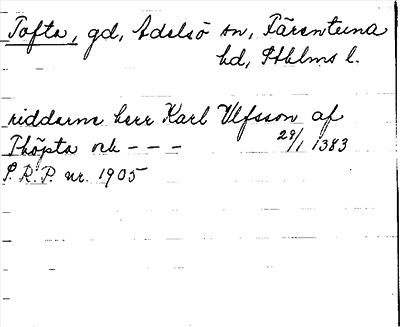 Tofta, gd, Adelsö sn, Färentuna
hd, Sthlms l.
riddarne herr Karl Ulfsson af
Thöpta och - - - 29/1 1383
S. R. P. nr. 1905